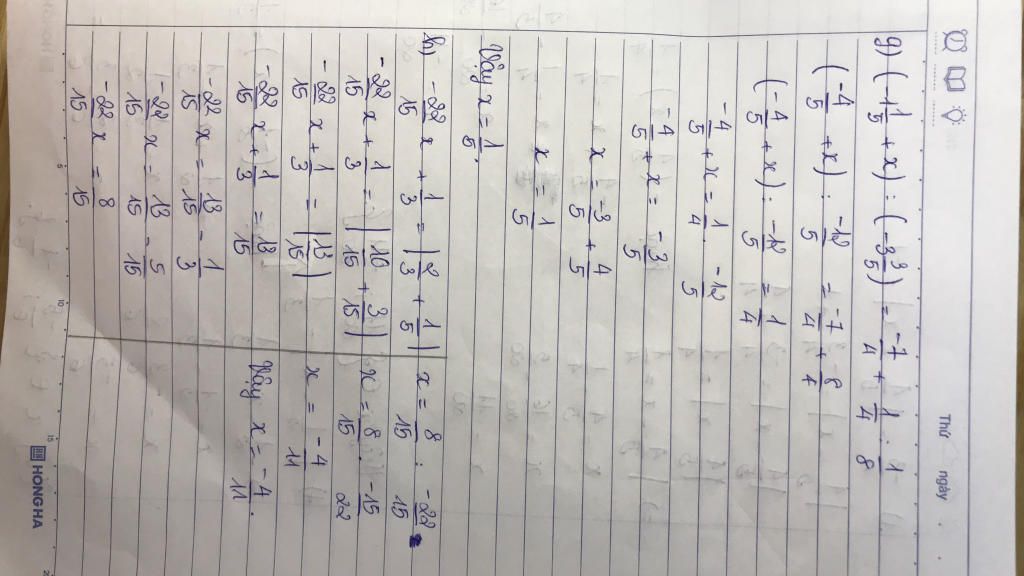 Thứ ngày
g) (-1 1/5 + x) : (-3 3/5) = -7/4 + 1/4 : 1/8
(-4/5 + x) : -12/5 = -7/4 + 8/4
(-4/5 + x) : -12/5 = 1/4
-4/5 + x = 1/4 . -12/5
-4/5 + x = -3/5
x = -3/5 + 4/5
x = 1/5
Vậy x = 1/5.
h) -22/15 x + 1/3 = |2/3 + 1/5|
-22/15 x + 1/3 = |10/15 + 3/15|
-22/15 x + 1/3 = |13/15|
-22/15 x + 1/3 = 13/15
-22/15 x = 13/15 - 1/3
-22/15 x = 13/15 - 5/15
-22/15 x = 8/15
x = 8/15 : -22/15
x = 8/15 . -15/22
x = -4/11
Vậy x = -4/11.
5 10 15
HONG HA